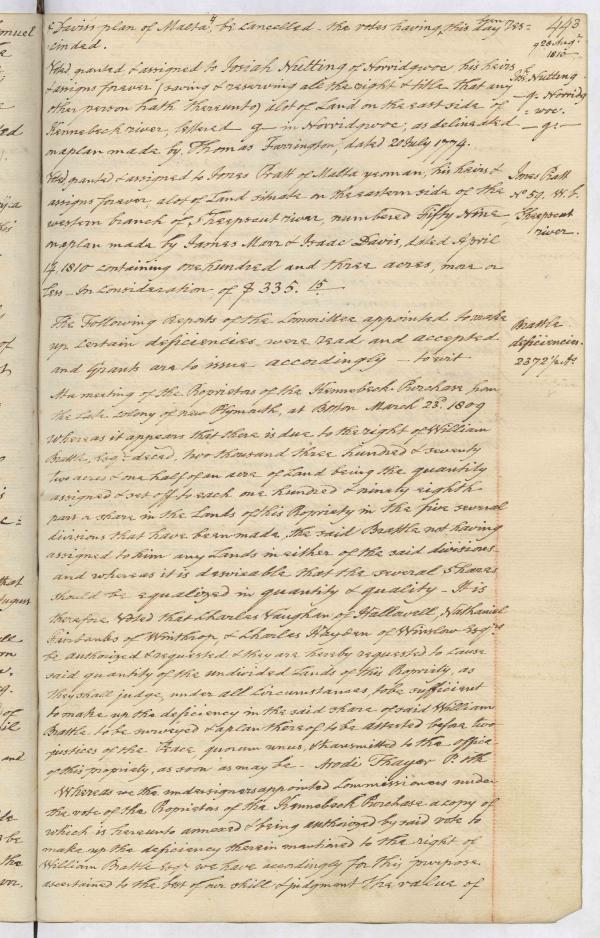 443
& Davis's plan of Malta", be cancelled - the votes having this day been res-
cinded.
28 Augt.
1810
Voted granted & assigned to Josiah Nutting of Norridgwoc, his heirs
& assigns forever (saving & reserving all the right & title that any
other person hath thereunto) a lot of Land on the east side of
Kennebeck river, lettered g in Norridgwoc, as delineated
on a plan made by Thomas Farrington, dated 20 July 1774.
Jos. Nutting
g. Norridg
woc.
g.
Voted granted & assigned to Jones Pratt of Malta yeoman, his heirs &
assigns forever, a lot of Land situate on the eastern side of the
western branch of Sheepscut river, numbered Fifty Nine
on a plan made by James Marr & Isaac Davis, dated April
17. 1810 containing one hundred and three acres, more or
less - In Consideration of $335. 15
Jones Pratt
No. 59. W. b.
Sheepscut
river.
The Following Reports of the Committee appointed to make
up certain deficiencies were read and accepted
and Grants are to issue accordingly - to wit
Brattle
deficiencies.
2372 1/2 As.
At a meeting of the Proprietors of the Kennebeck Purchase from
the late Colony of new Plymouth, at Boston March 23d. 1809
Whereas it appears that there is due to the right of William
Brattle, Esqr. deced. two thousand three hundred & seventy
two acres & one half of an acre of Land being the quantity
assigned & set off to each one hundred & ninety eighth
part a share in the Lands of this Propriety in the five several
divisions that have been made, the said Brattle not having
assigned to him any Lands in either of the said divisions
and whereas it is desireable that the several Shares
should be equalized in quantity & quality - It is
therefore Voted that Charles Vaughan of Hallowell, Nathaniel
Fairbanks of Winthrop, & Charles Hayden of Winslow Esqrs
be authorized & requested & they are hereby requested to cause
said quantity of the undivided Lands of this Propriety, as
they shall judge, under all Circumstances to be sufficient
to make up the deficiency in the said share of said William
Brattle to be surveyed & a plan thereof to be attested before two
justices of the Peace quorum unus, & transmitted to the office
of this propriety, as soon as may be - Arodi Thayer P. Clk
Whereas we the undersigners appointed Commissioners under
the vote of the Proprietors of the Kennebeck Purchase a copy of
which is hereunto annexed & being authorized by said vote to
make up the deficiency therein mentioned to the right of
William Brattle Esqr. we have accordingly for this purpose
ascertained to the best of our skill & judgment the value of